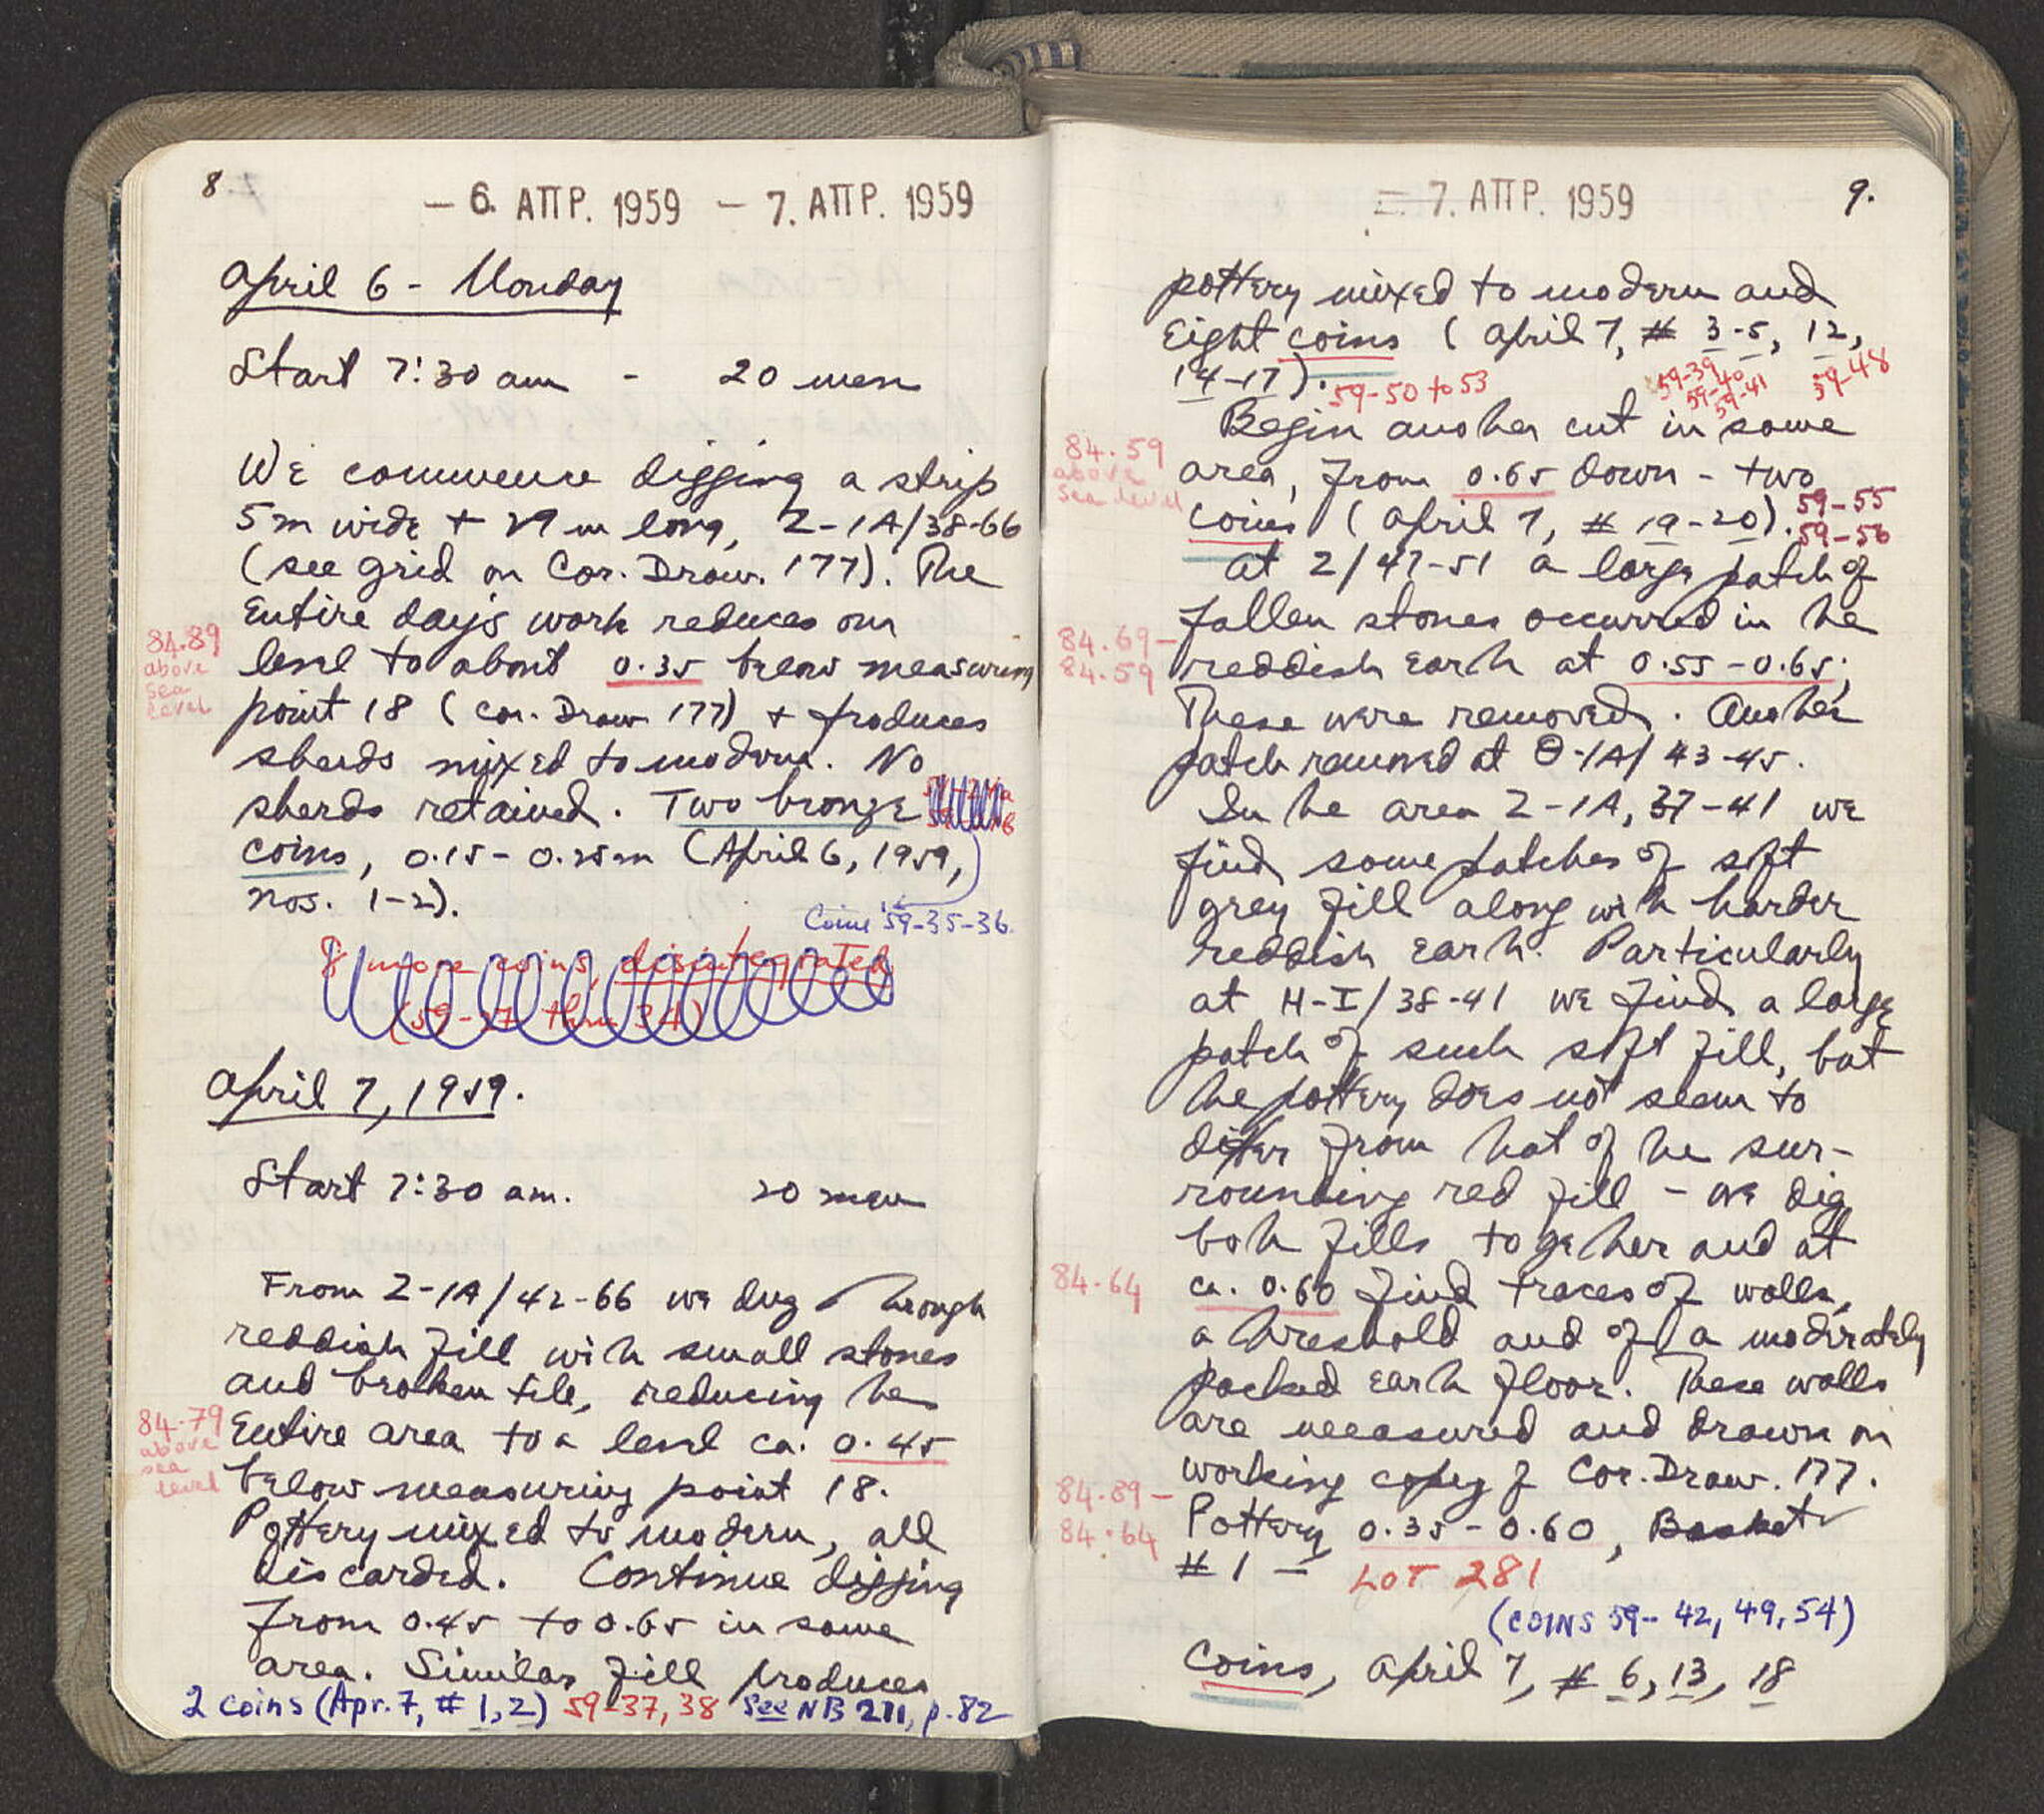 8.
— 6. ΑΠΡ. 1959 — 7. ΑΠΡ. 1959
April 6 - Monday
Start 7:30 am - 20 men
We commence digging a strip
5m wide + 29 m long, Z-IA/38-66
(see grid on Cor. Draw. 177). The
Entire day's work reduces our
84.89
above
sea
level
level to about 0.35 below measuring
point 18 (Cor. Draw 177) + produces
sherds mixed to modern. No
sherds retained. Two bronze
coins, 0.15-0.25m (April 6, 1959,
nos. 1-2).
Coins '59-35-36.
8 more coins, disintegrated
(59-27 thru 34)
April 7, 1959.
Start 7:30 am. 20 men
From Z-IA/42-66 we dug through
reddish fill with small stones
and broken tile, reducing the
84.79
above
sea
level
Entire area to a level ca. 0.45
below measuring point 18.
Pottery mixed to modern, all
discarded. Continue digging
from 0.45 to 0.65 in same
area. Similar fill produces
2 coins (Apr. 7, # 1, 2) 59-37, 38 See NB 211, p. 82
— 7. ΑΠΡ. 1959
9.
pottery mixed to modern and
Eight coins (April 7, # 3-5, 12,
59-39
59-40
59-41
59-48
14-17). 59-50 to 53
Begin another cut in same
84.59
above
sea level
area, from 0.65 down - two
coins (April 7, # 19-20). 59-55
59-56
at Z/47-51 a large patch of
fallen stones occurred in the
84.69-
84.59
reddish Earth at 0.55-0.65;
These were removed. Another
patch removed at Θ-IA/43-45.
In the area Z-IA, 37-41 we
find some patches of soft
grey fill along with harder
reddish Earth. Particularly
at H-I/38-41 we find a large
patch of such soft fill, but
the pottery does not seem to
differ from that of the sur-
rounding red fill - we dig
both fills together and at
84.64
ca. 0.60 find traces of walls,
a threshold and of a moderately
packed Earth floor. These walls
are measured and drawn on
working copy of Cor. Draw. 177.
84.89-
84.64
Pottery 0.35-0.60, Basket
# 1 — LOT 281
(COINS 59-42, 49, 54)
Coins, April 7, # 6, 13, 18